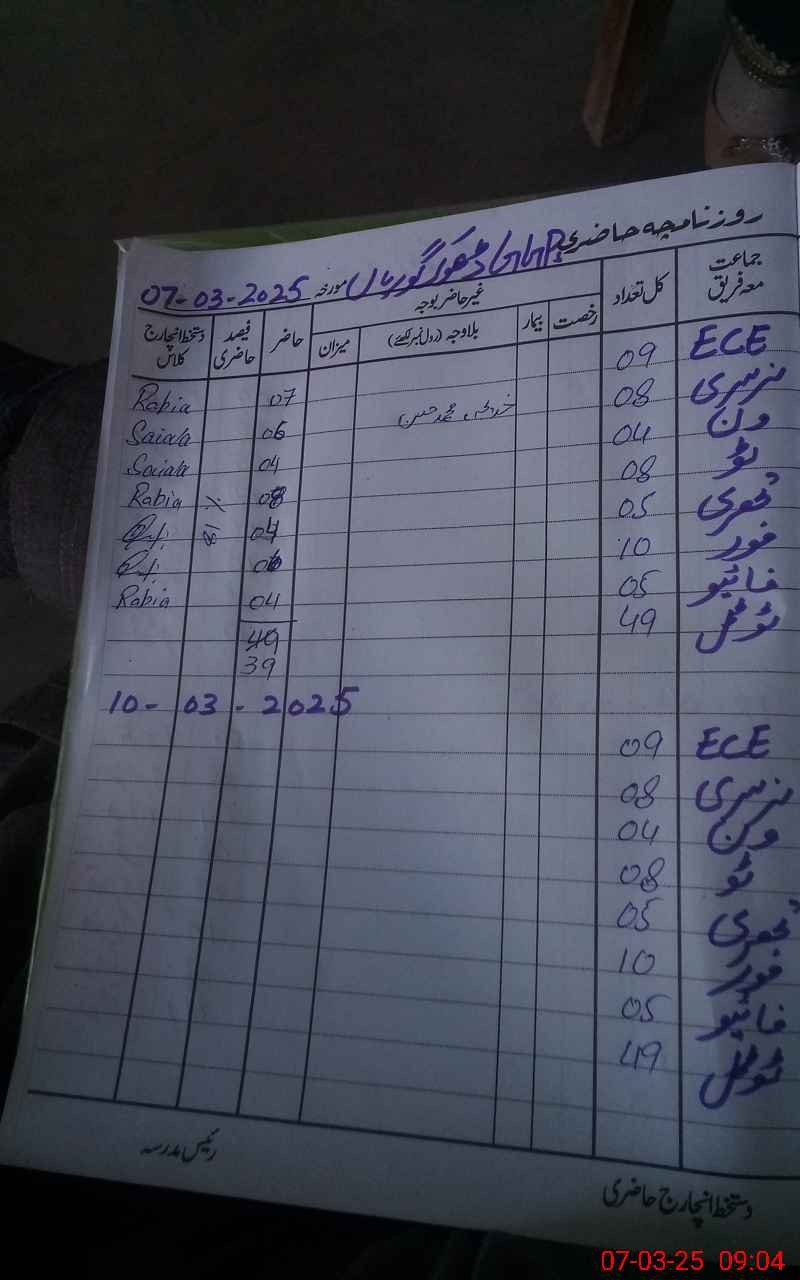 روزنامچہ حاضری GGPS ڈھوک گوریاں مورخہ 07-03-2025
جماعت معہ فریق کل تعداد غیر حاضر بوجہ حاضر فیصد حاضری دستخط انچارج کلاس
رخصت بیمار بلاوجہ (رول نمبر لکھئے) میزان
ECE 09 07 Rabia
نرسری 08 محمد حسن 06 Saiab
ون 04 04 Saiab
ٹو 08 08 Rabia
تھری 05 04 81 %
فور 10 06
فائیو 05 04 Rabia
ٹوٹل 49 49
39
10-03-2025
ECE 09
نرسری 08
ون 04
ٹو 08
تھری 05
فور 10
فائیو 05
ٹوٹل 49
دستخط انچارج حاضری رئیس مدرسہ
07-03-25 09:04